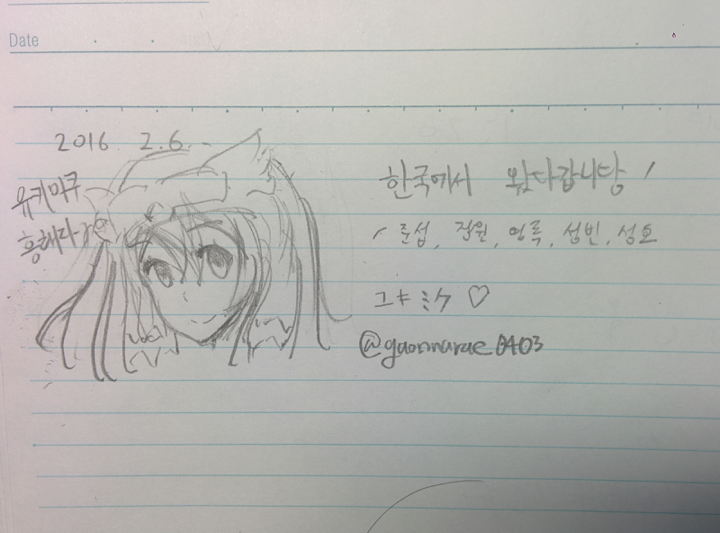 Date
2016. 2. 6.
유키미쿠
흥해라
한국에서 왔다갑니당!
준섭, 정원, 영록, 성빈, 성호
ユキミク ♡
@gaonnurae0403